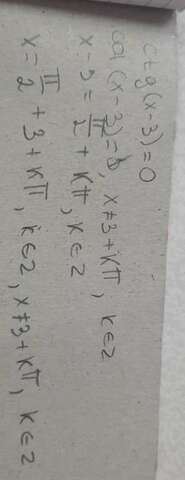 ctg(x-3)=0
cot(x-3)=0, x≠3+kπ, k∈z
x-3=π/2+kπ, k∈z
x=π/2+3+kπ, k∈z, x≠3+kπ, k∈z